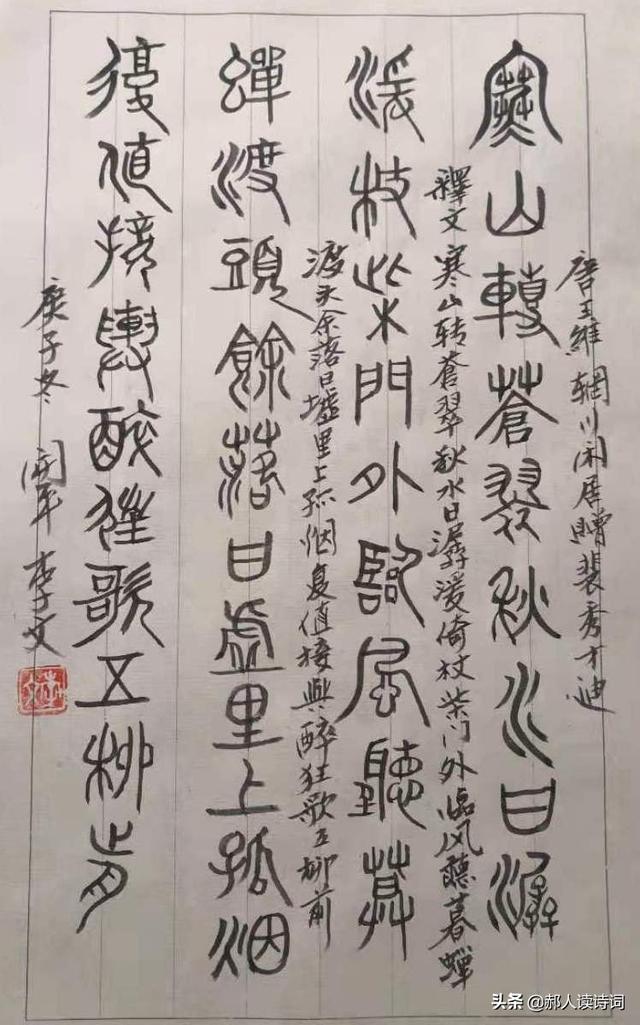 唐王維辋川闲居赠裴秀才迪
寒山轉蒼翠秋水日潺
釋文寒山转蒼翠秋水日潺湲倚杖柴门外临风聽暮蝉
湲枝柴門外臨風聽暮
蟬渡頭餘落日虛里上孤烟
渡头余落日墟里上孤烟复值接與醉狂歌五柳前
復值接輿醉狂歌五柳前
庚子冬 李文
头条 @郝人读诗词